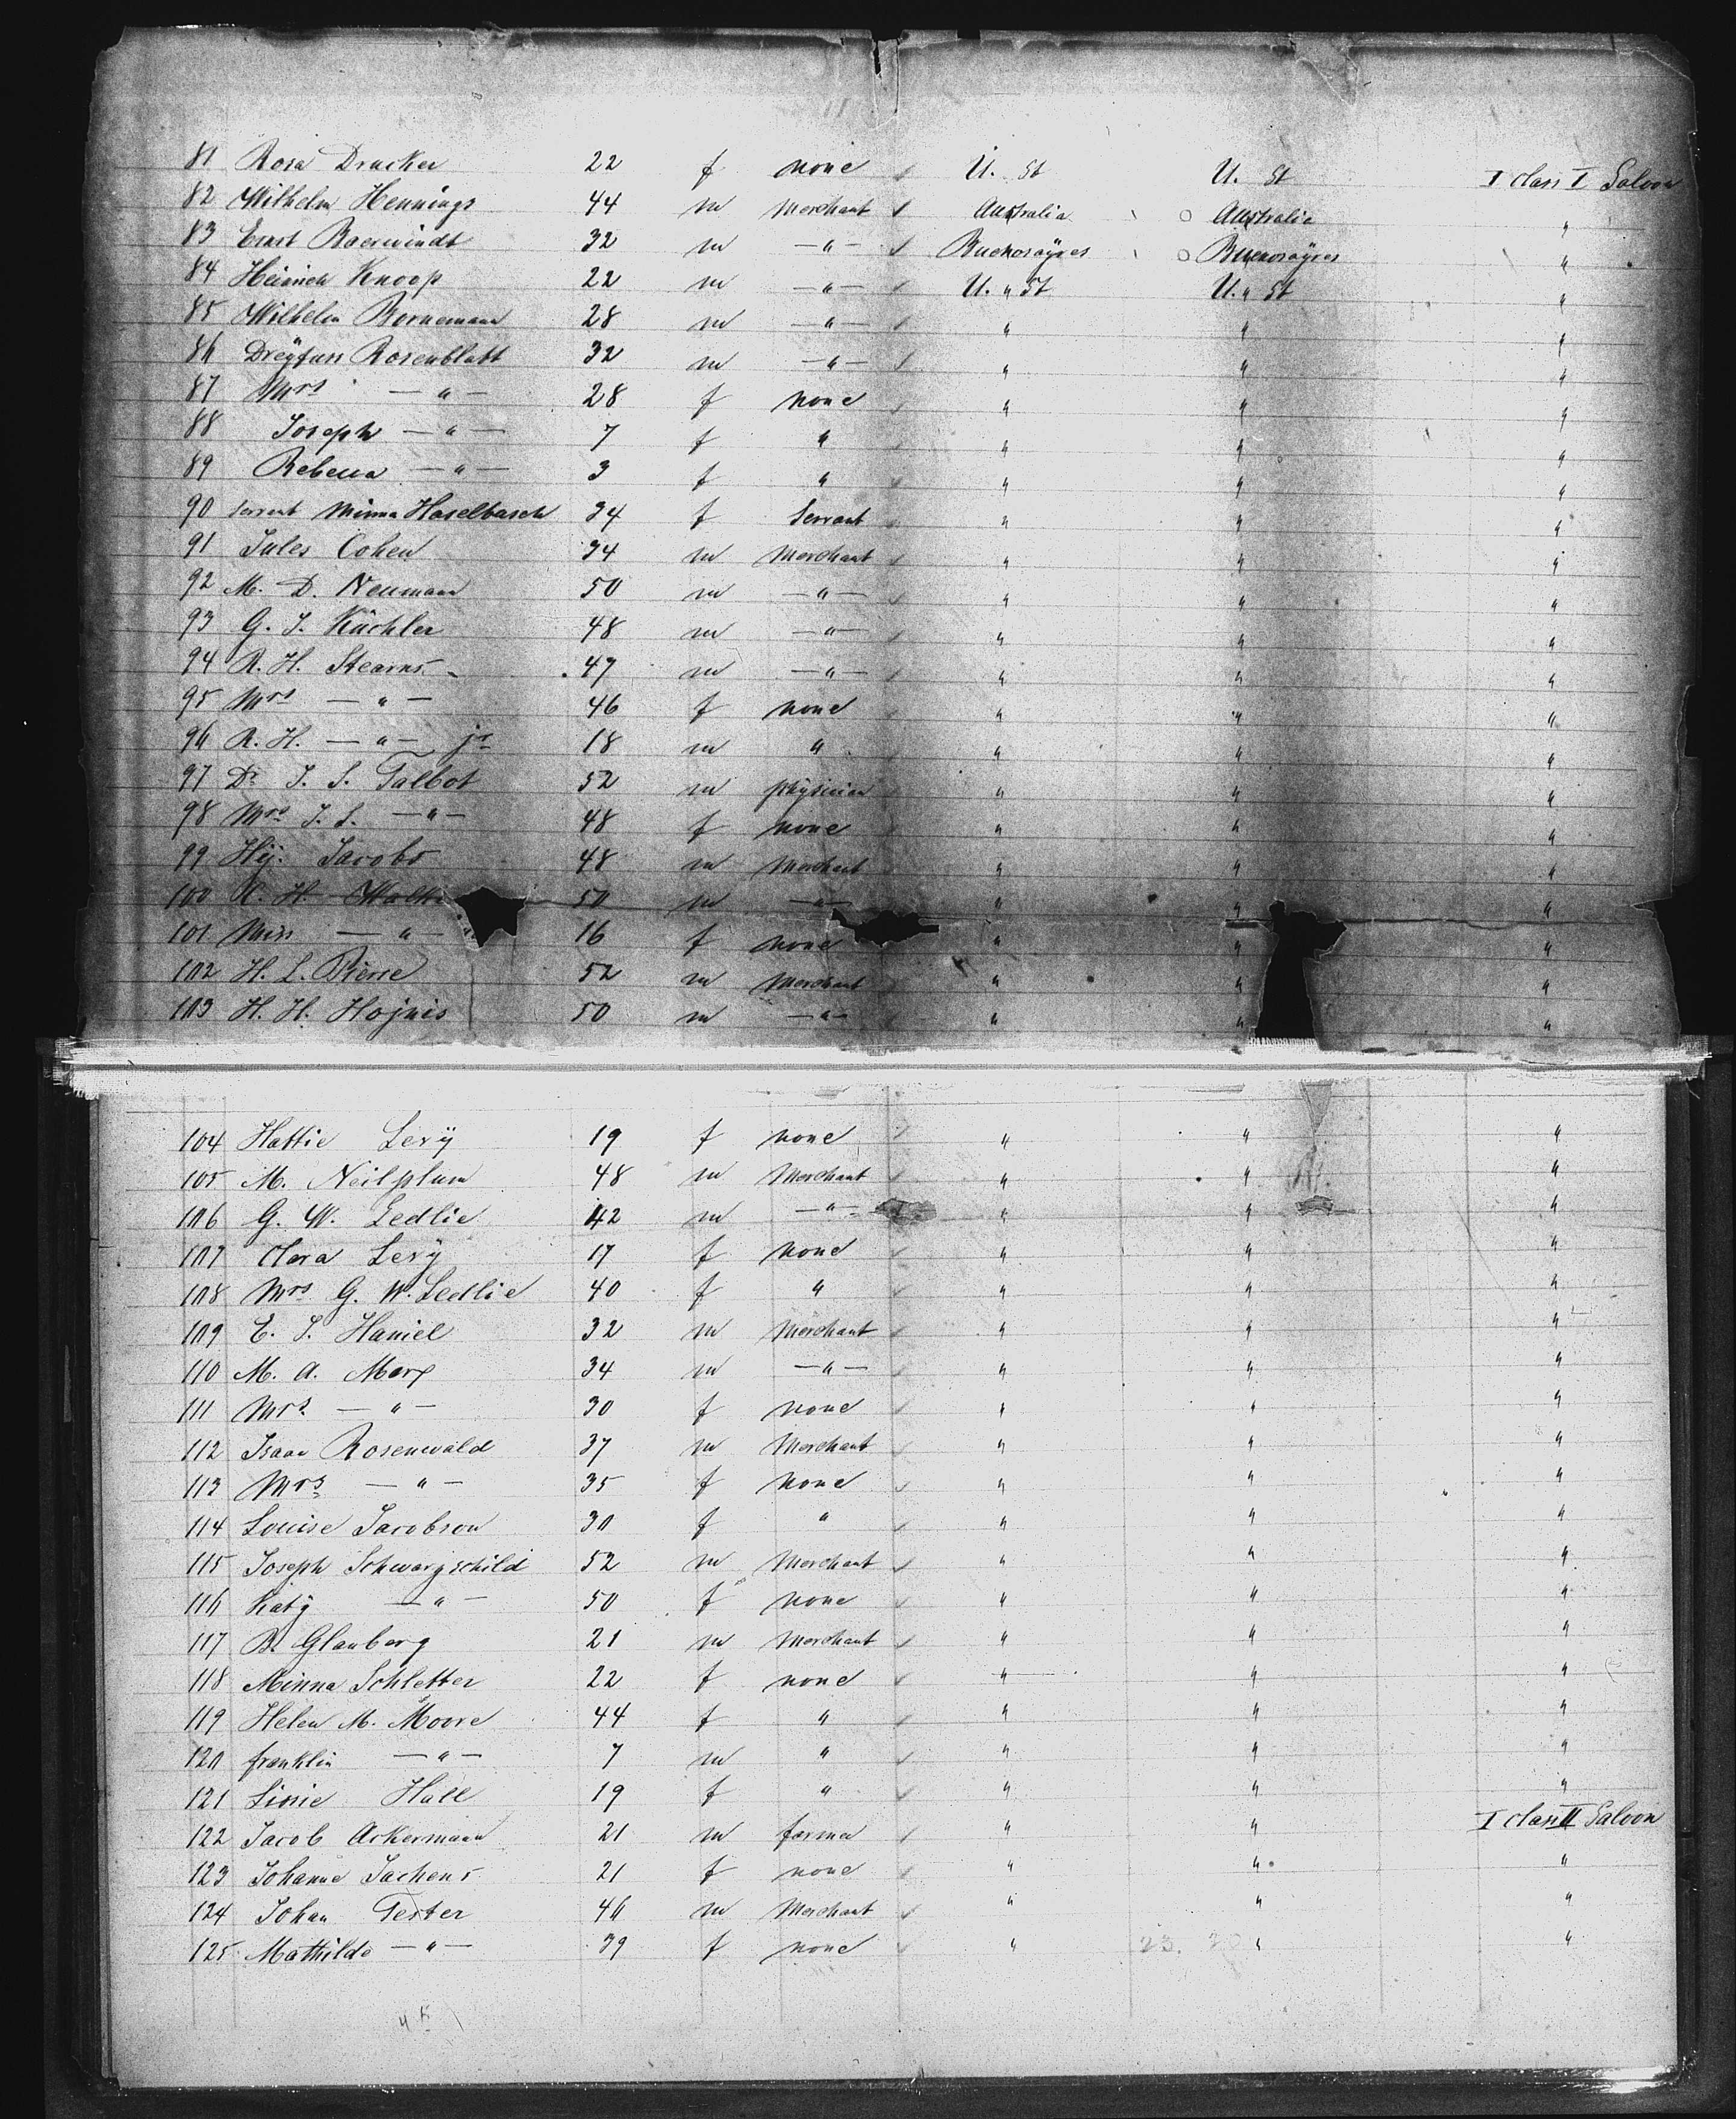 81 Rosa Drucker 22 f none U. St U. St I Class I Saloon
82 Wilhelm Hennings 44 m Merchant Australia Australia "
83 Ernst Baerwindt 32 m —"— Buenosayres Buenosayres "
84 Heinrich Knoop 22 m —"— U. " St U. " St "
85 Wilhelm Bornemann 28 m —"— " " "
86 Dreyfuss Rosenblatt 32 m —"— " " "
87 Mrs —"— 28 f none " " "
88 Joseph —"— 7 f " " " "
89 Rebecca —"— 3 f " " " "
90 Servant Minna Haselbasch 34 f Servant " " "
91 Jules Cohen 34 m Merchant " " "
92 M. D. Neumann 50 m —"— " " "
93 G. J. Küchler 48 m —"— " " "
94 R. H. Stearns 47 m —"— " " "
95 Mrs —"— 46 f none " " "
96 R. H. —"— jr 18 m " " " "
97 Dr J. S. Talbot 52 m physician " " "
98 Mrs J. S. —"— 48 f none " " "
99 Hy. Jacobs 48 m Merchant " " "
100 H. 50 m —"— " " "
101 Miss —"— 16 f none " " "
102 H. L. Pierce 52 m Merchant " " "
103 H. H. Hojnis 50 m —"— " " "
104 Hattie Levy 19 f none " " "
105 M. Neilplum 48 m Merchant " " "
106 G. W. Ledlie 42 m —"— " " "
107 Clara Levy 17 f none " " "
108 Mrs G. W. Ledlie 40 f " " " "
109 E. J. Haniel 32 m Merchant " " "
110 M. A. Marx 34 m —"— " " "
111 Mrs —"— 30 f none " " "
112 Isaac Rosenwald 37 m Merchant " " "
113 Mrs —"— 35 f none " " "
114 Louise Jacobson 30 f " " " "
115 Joseph Schwarzschild 52 m Merchant " " "
116 Katy —"— 50 f none " " "
117 B. Glauberg 21 m Merchant " " "
118 Minna Schletter 22 f none " " "
119 Helen M. Moore 44 f " " " "
120 franklin —"— 7 m " " " "
121 Lissie Hall 19 f " " " "
122 Jacob Ackermann 21 m farmer " " I Class II Saloon
123 Johanne Jachens 21 f none " " "
124 Johan Tester 46 m Merchant " " "
125 Mathilde —"— 39 f none " " "